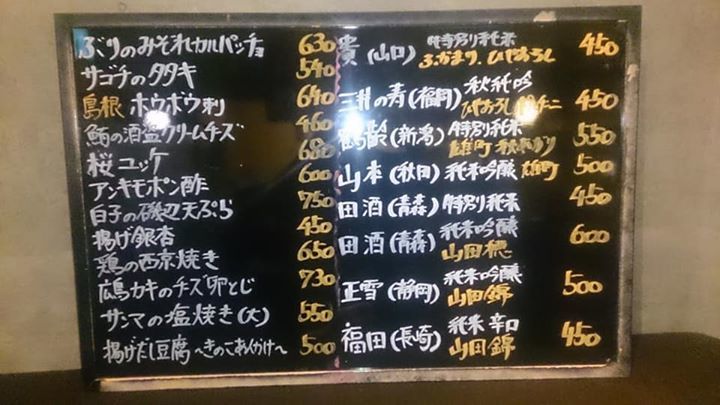 ぶりのみぞれカルパッチョ 630
サゴチのタタキ 540
島根 ホウボウ刺 640
鮪の酒盗クリームチーズ 460
桜ユッケ 680
アンキモポン酢 600
白子の磯辺天ぷら 750
揚げ銀杏 450
鶏の西京焼き 650
広島カキのチーズ卵とじ 730
サンマの塩焼き(大) 550
揚げだし豆腐 ~きのこあんかけ~ 500
貴(山口) 特別純米 450
ふかまり、ひやおろし
三井の寿(福岡) 秋純吟 450
ひやおろしポルチーニ
鶴齢(新潟) 特別純米 550
雄町
山本(秋田) 純米吟醸 雄町 500
田酒(青森) 特別純米 450
田酒(青森) 純米吟醸 600
山田穂
正雪(静岡) 純米吟醸 500
山田錦
福田(長崎) 純米 辛口 450
山田錦